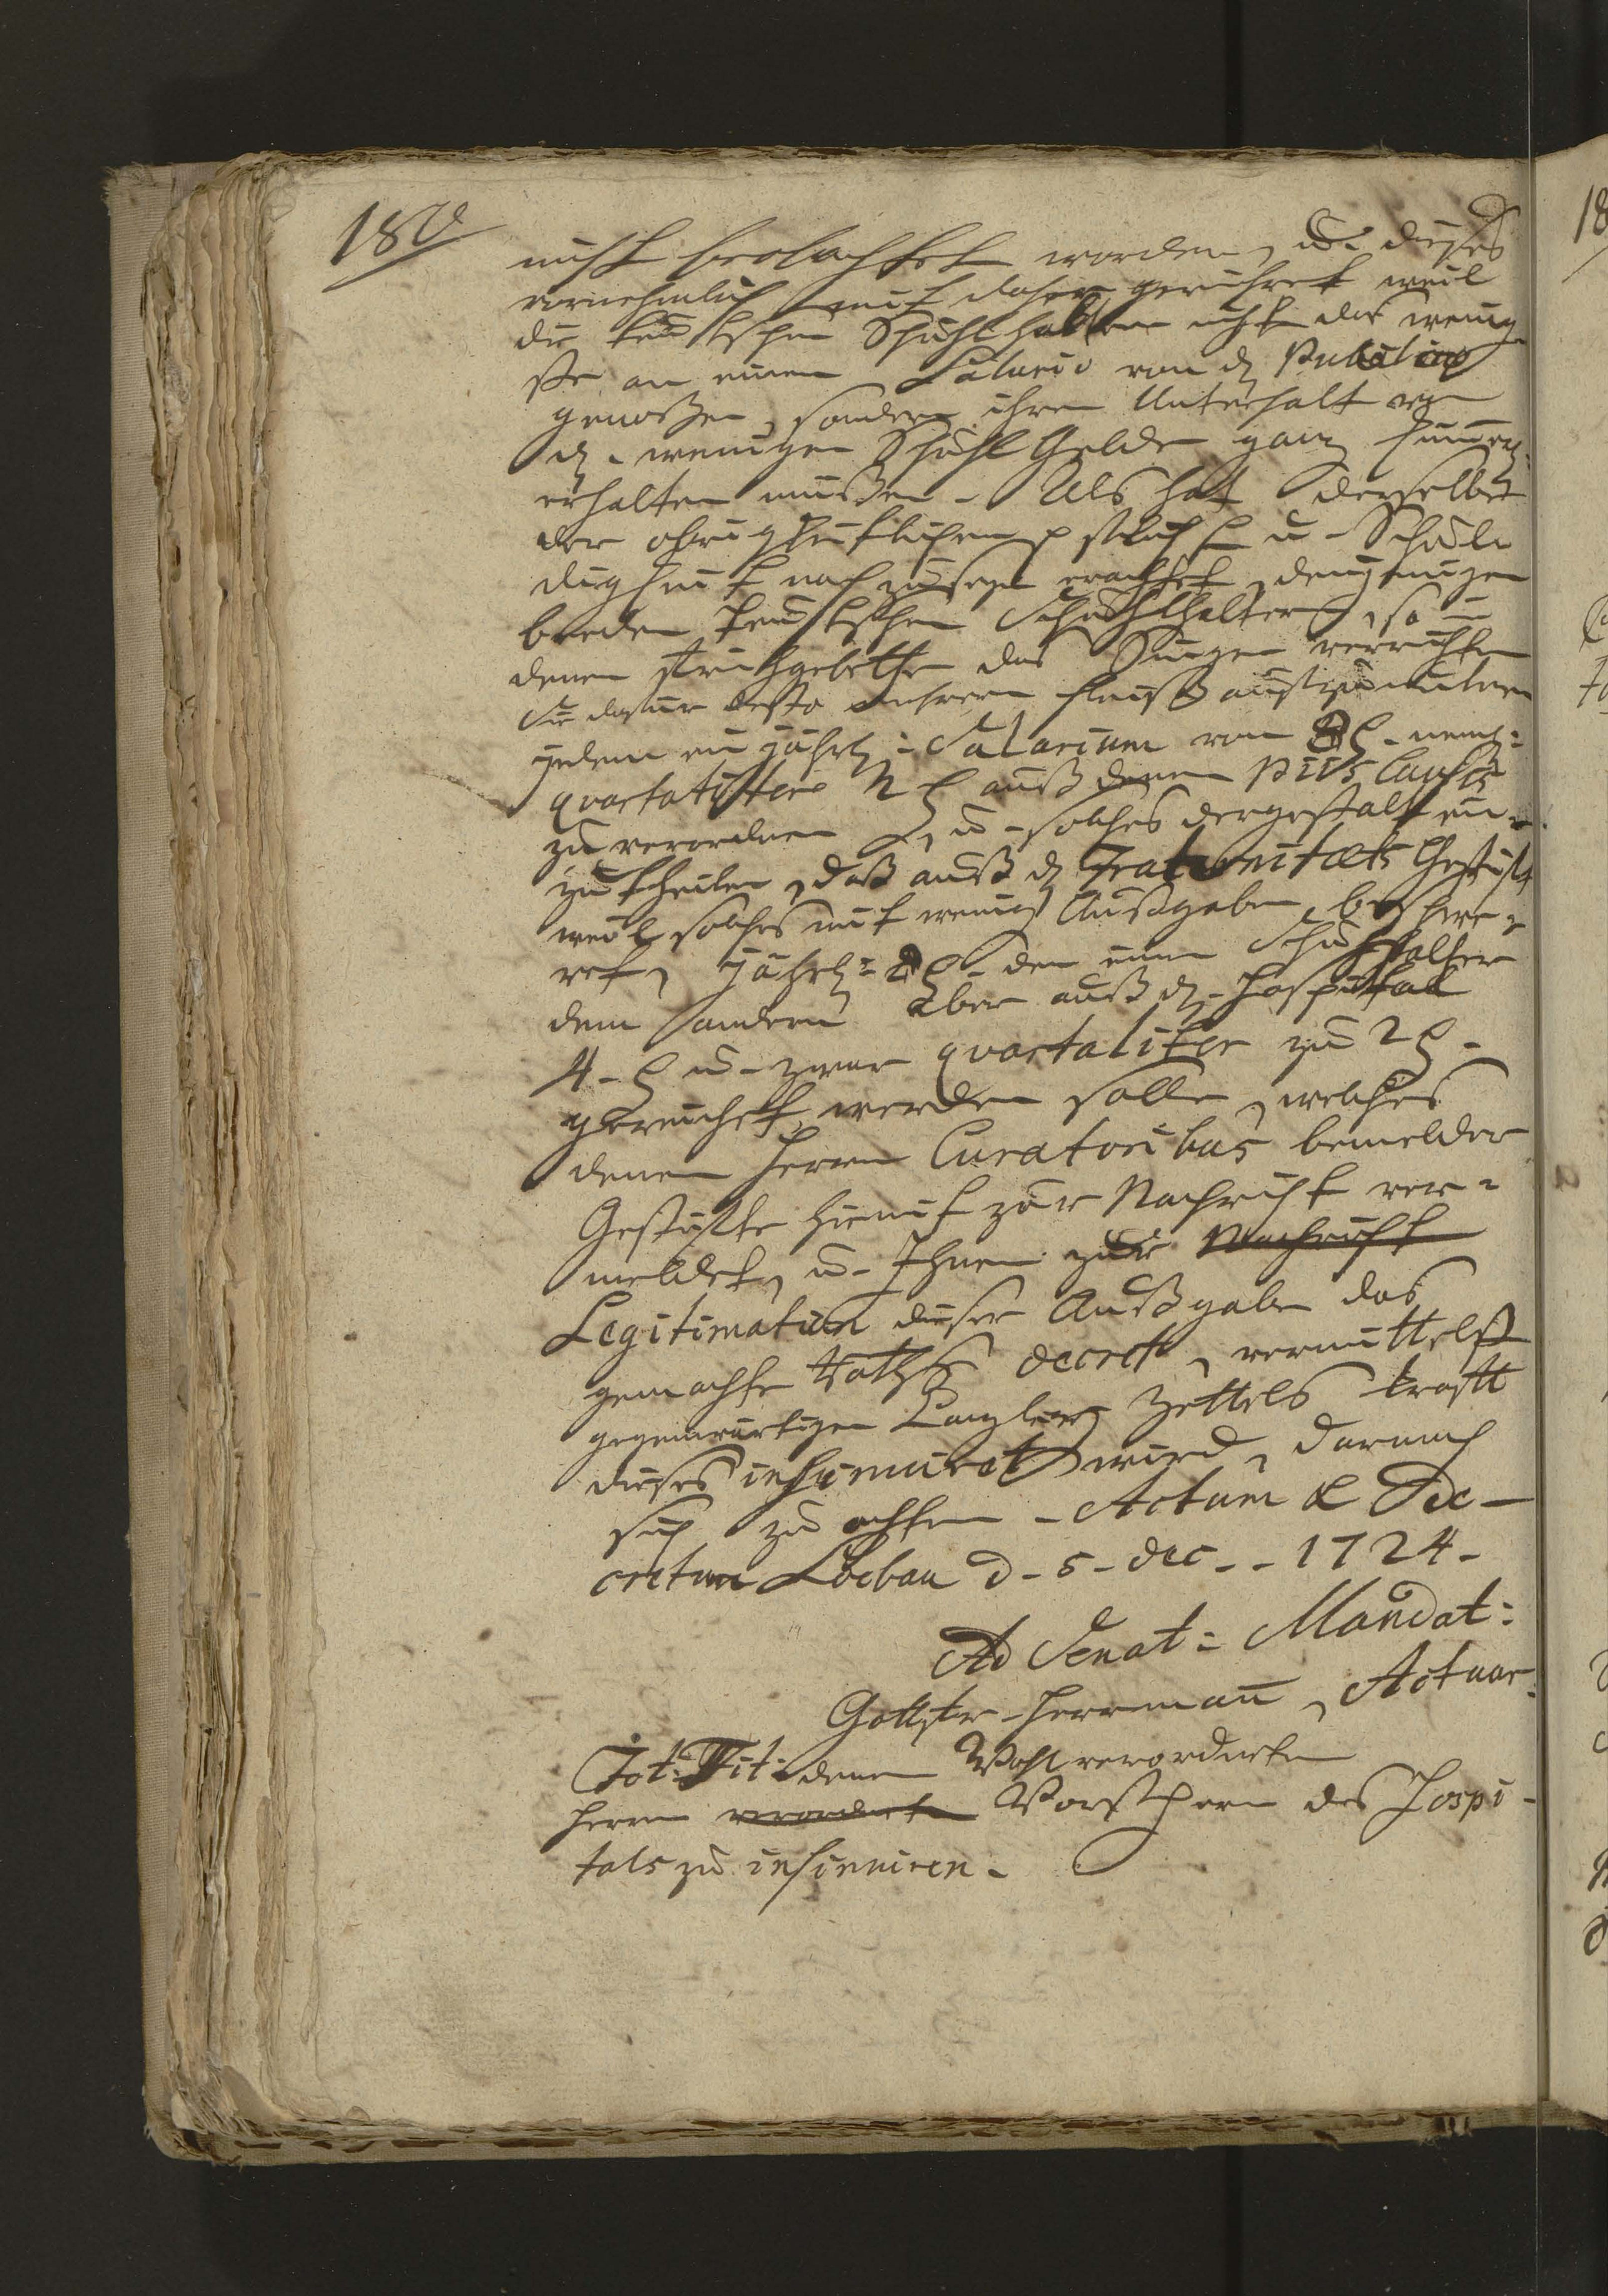 180
nicht beobachtet worden, u. dieses
vornehmlich mit daher gerühret weil
die teutschen Schuhlhalter nicht das wenig-
ste an einem Salario von d. Publico
genoßen, sondern ihren Unterhalt von
d. wenigen Schuhl Gelde ganz
erhalten müßen. Als hat derselbe
der obrigkeitlichen pflicht u. Schul-
digkeit nach zu seyn erachtet, denjenigen
beeden teutschen Schuhlhaltern, so in
denen das Singen verrichten
Sie dafür desto mehrern Fleiß anzuwenden
jedem ein jährl: Salarium von 8 nemb:
quartaliter 2 auß denen piis causis
zu verordnen, u. solches dergestalt ein-
zutheilen, daß auß d. Fraternitæts Gestifft
weil solches mit wenig Außgaben beschwe-
ret, jährl: 8 dem einen Schuhlhalter
dem andern aber auß d. Hospital
4. u. zwar quartaliter zu 2
gereichet werden solle, welches
denen Herren Curatoribus bemelder
Gestiffte hiemit zur Nachricht ver-
meldet, u. Ihnen zur Nachricht
Legitimation dieser Außgabe das
gemachte Raths decret, vermittelst
gegenwärtigen Canzley Zettels krafft
dieses insinuiret wird, darnach
sich zu achten. Actum & De-
cretum Loebau d. 5. dec. 1724.
Ad Senat: Mandat:
Herrmann, Actuar.
Tot: Tit: denen Wohlverordneten
Herren verordneten Vorstehern des Hospi-
tals zu insinuiren.